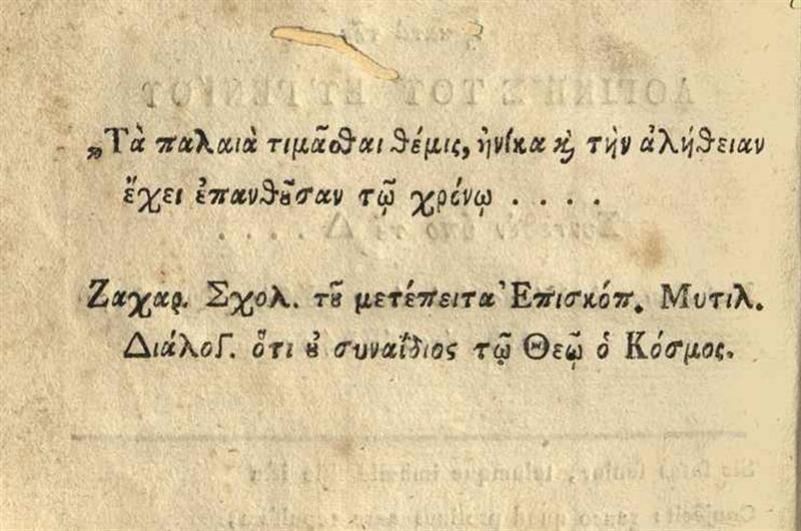 „Τὰ παλαιὰ τιμᾶσθαι θέμις, ἡνίκα ϗ̀ τὴν ἀλήθειαν
ἔχει ἐπανθȣ͂σαν τῷ χρόνῳ . . . .
Ζαχαρ. Σχολ. τȣ͂ μετέπειτα Ἐπισκόπ. Μυτιλ.
Διάλογ. ὅτι ȣ̓ συναΐδιος τῷ Θεῷ ὁ Κόσμος.